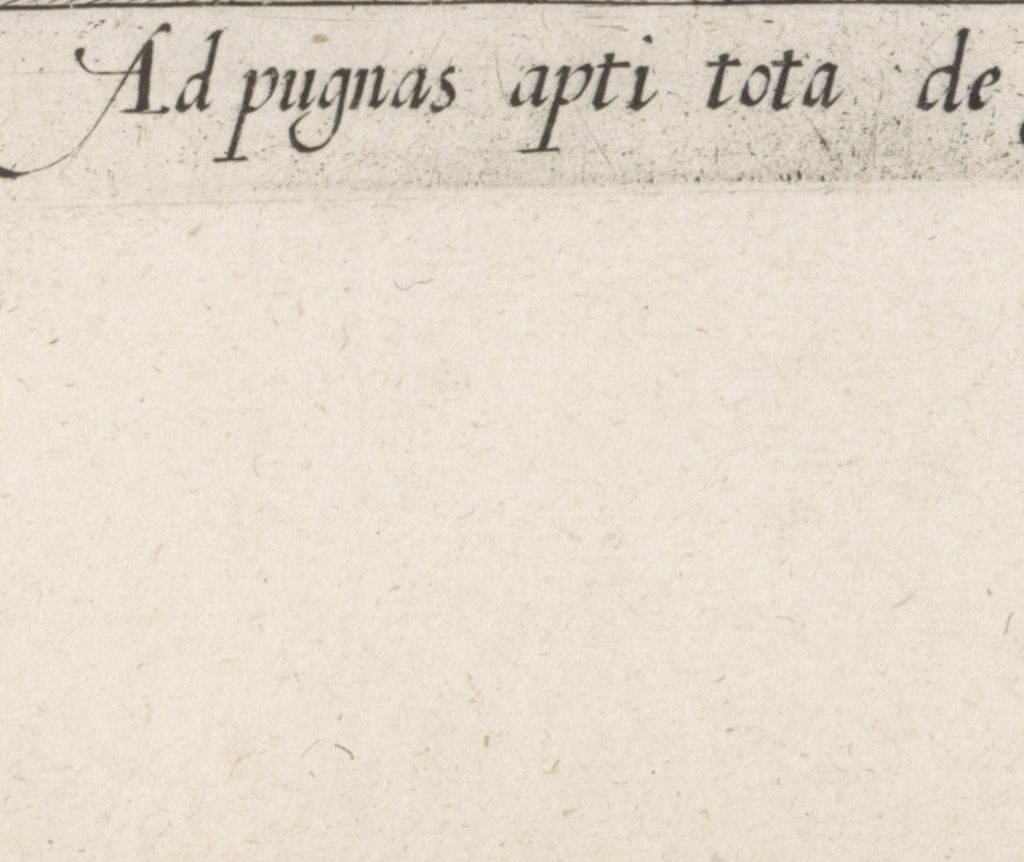 Ad pugnas apti tota de